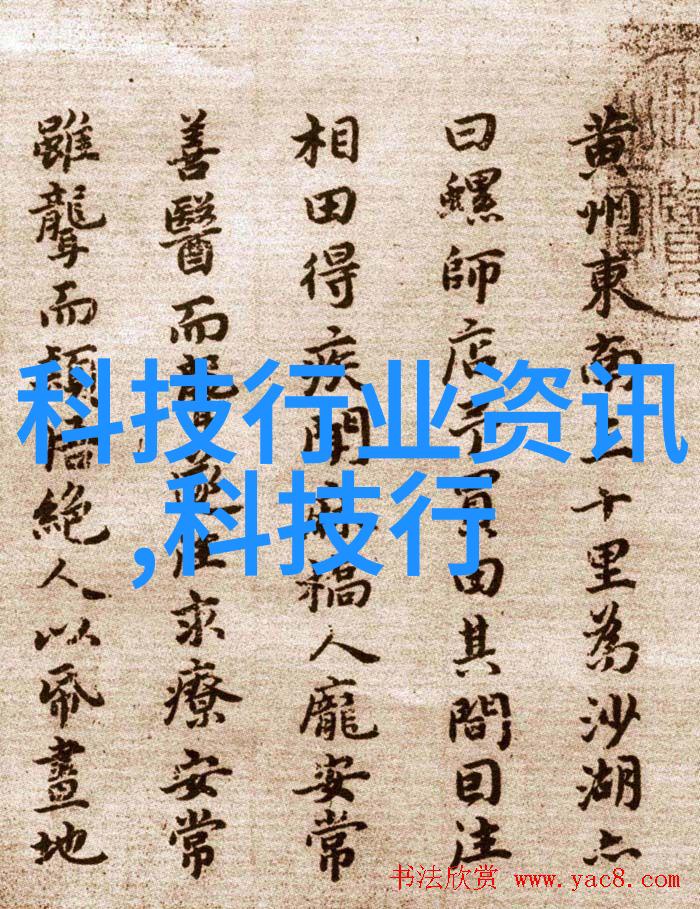 黄州東南三十里為沙湖亦
曰螺師店予買田其間因往
相田得疾聞麻橋人龐安常
善醫而聾遂往求療安常
雖聾而穎悟絶人以帋畫地
科技行业资讯
,科技行
书法欣赏 www.yac8.com